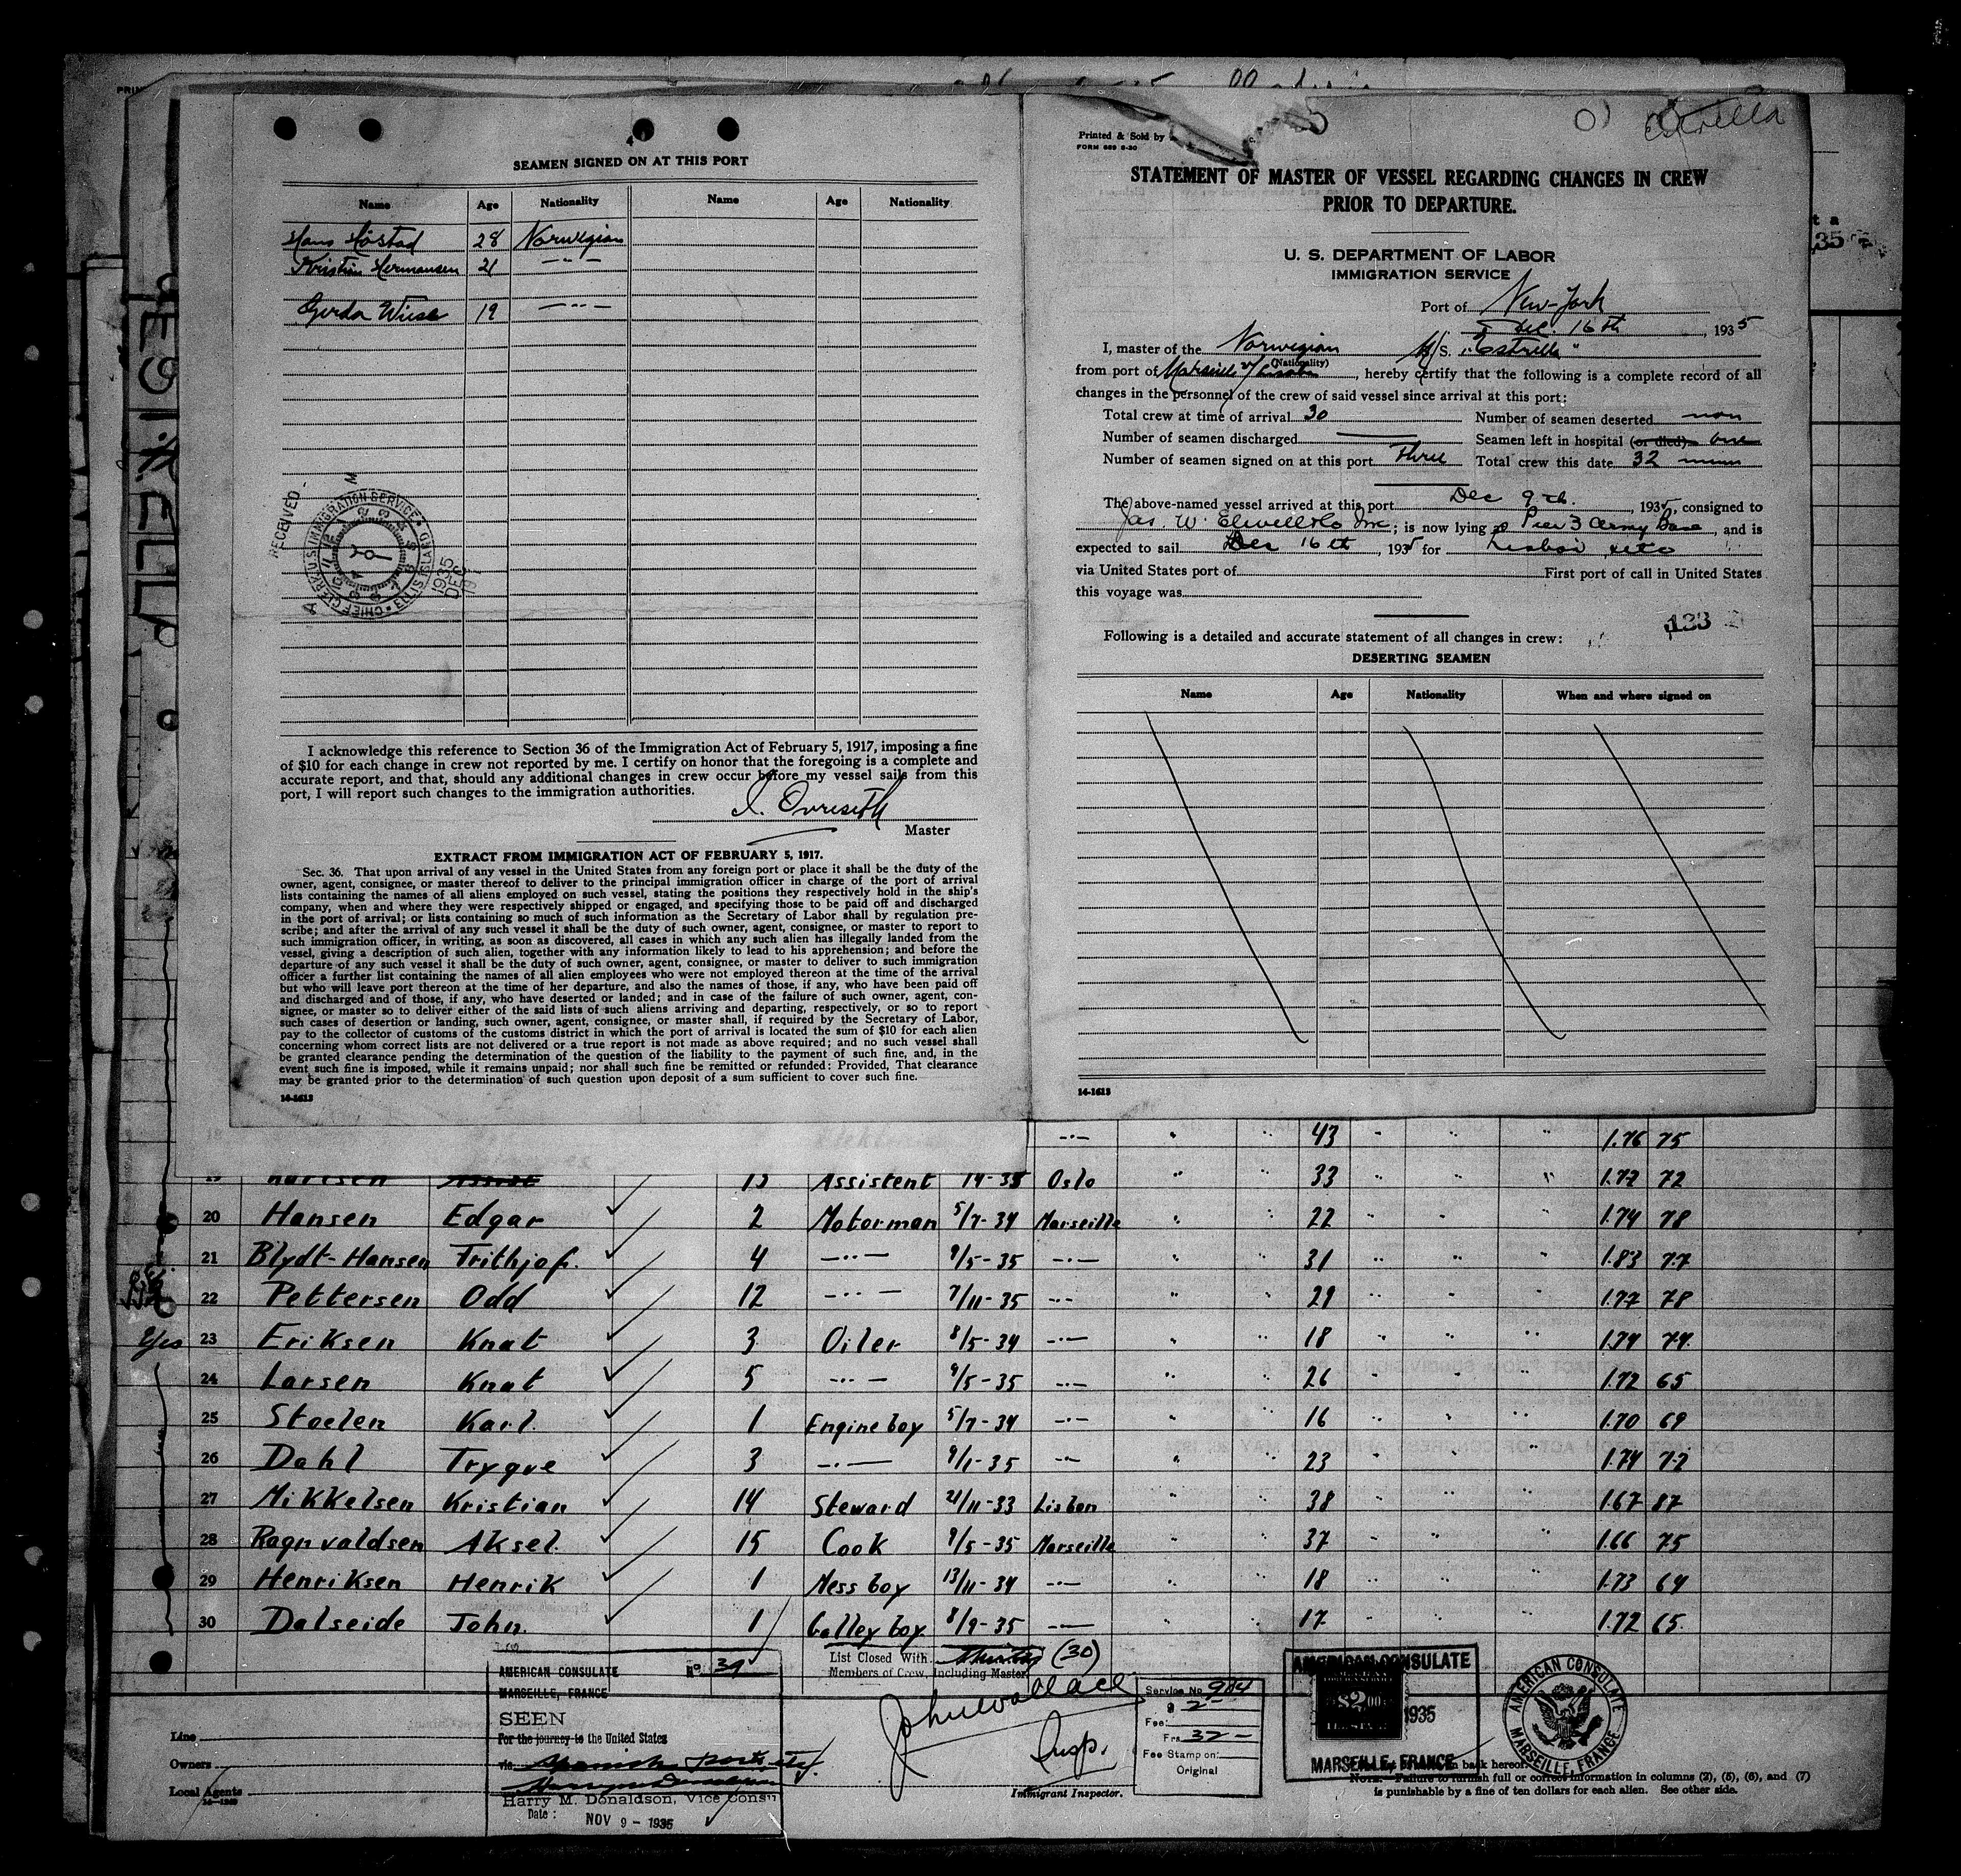 4
SEAMEN SIGNED ON AT THIS PORT
Name Age Nationality Name Age Nationality
Hans Höstad 28 Norwegian
Kristian Hermansen 21 — " —
Gerda Wiese 19 — " —
RECEIVED
CHIEF CLERK U.S. IMMIGRATION SERVICE ELLIS ISLAND
1935 DEC
I acknowledge this reference to Section 36 of the Immigration Act of February 5, 1917, imposing a fine
of $10 for each change in crew not reported by me. I certify on honor that the foregoing is a complete and
accurate report, and that, should any additional changes in crew occur before my vessel sails from this
port, I will report such changes to the immigration authorities.
Master
EXTRACT FROM IMMIGRATION ACT OF FEBRUARY 5, 1917.
Sec. 36. That upon arrival of any vessel in the United States from any foreign port or place it shall be the duty of the
owner, agent, consignee, or master thereof to deliver to the principal immigration officer in charge of the port of arrival
lists containing the names of all aliens employed on such vessel, stating the positions they respectively hold in the ship's
company, when and where they were respectively shipped or engaged, and specifying those to be paid off and discharged
in the port of arrival; or lists containing so much of such information as the Secretary of Labor shall by regulation pre-
scribe; and after the arrival of any such vessel it shall be the duty of such owner, agent, consignee, or master to report to
such immigration officer, in writing, as soon as discovered, all cases in which any such alien has illegally landed from the
vessel, giving a description of such alien, together with any information likely to lead to his apprehension; and before the
departure of any such vessel it shall be the duty of such owner, agent, consignee, or master to deliver to such immigration
officer a further list containing the names of all alien employees who were not employed thereon at the time of the arrival
but who will leave port thereon at the time of her departure, and also the names of those, if any, who have been paid off
and discharged and of those, if any, who have deserted or landed; and in case of the failure of such owner, agent, con-
signee, or master so to deliver either of the said lists of such aliens arriving and departing, respectively, or so to report
such cases of desertion or landing, such owner, agent, consignee, or master shall, if required by the Secretary of Labor,
pay to the collector of customs of the customs district in which the port of arrival is located the sum of $10 for each alien
concerning whom correct lists are not delivered or a true report is not made as above required; and no such vessel shall
be granted clearance pending the determination of the question of the liability to the payment of such fine, and, in the
event such fine is imposed, while it remains unpaid; nor shall such fine be remitted or refunded: Provided, That clearance
may be granted prior to the determination of such question upon deposit of a sum sufficient to cover such fine.
14-1613
Estrella
Printed & Sold by
FORM 689 6-30
STATEMENT OF MASTER OF VESSEL REGARDING CHANGES IN CREW
PRIOR TO DEPARTURE.
U. S. DEPARTMENT OF LABOR
IMMIGRATION SERVICE
Port of New-York
Dec. 16th, 1935
I, master of the Norwegian M/S. "Estrella"
(Nationality)
from port of Marseille, hereby certify that the following is a complete record of all
changes in the personnel of the crew of said vessel since arrival at this port:
Total crew at time of arrival 30 Number of seamen deserted non
Number of seamen discharged — Seamen left in hospital (or died) one
Number of seamen signed on at this port Three Total crew this date 32
The above-named vessel arrived at this port Dec 9th., 1935, consigned to
Jas. W. Elwell & Co Inc; is now lying at Pier 3 Army Base, and is
expected to sail Dec 16th, 1935 for Lisboa
via United States port of First port of call in United States
this voyage was
133
Following is a detailed and accurate statement of all changes in crew:
DESERTING SEAMEN
Name Age Nationality When and where signed on
14-1613
ESTRELLA
— " — " " 43 " " 1.76 75
13 Assistent 19-35 Oslo " " 33 " " 1.77 72
20 Hansen Edgar 2 Motorman 5/7-34 Marseille " " 22 " " " 1.74 78
21 Blydt-Hansen Frithjof. 4 — " — 9/5-35 — " — " " 31 " " " 1.83 77
22 Pettersen Odd 12 — " — 7/11-35 — " — " " 29 " " " 1.77 78
Yes 23 Eriksen Knut 3 Oiler 8/5-34 — " — " " 18 " " " 1.74 74
24 Larsen Knut 5 — " — 9/5-35 — " — " " 26 " " " 1.72 65
25 Stoelen Karl. 1 Engine boy 5/7-34 — " — " " 16 " " " 1.70 69
26 Dahl Trygve 3 — " — 9/1-35 — " — " " 23 " " " 1.74 72
27 Mikkelsen Kristian 14 Steward 21/11-33 Lisbon " " 38 " " " 1.67 87
28 Ragnvaldsen Aksel. 15 Cook 9/5-35 Marseille " " 37 " " " 1.66 75
29 Henriksen Henrik 1 Mess boy 13/11-34 — " — " " 18 " " " 1.73 64
30 Dalseide John. 1 Galley boy 8/9-35 — " — " " 17 " " " 1.72 65.
List Closed With Thirty (30)
Members of Crew, Including Master
AMERICAN CONSULATE No. 39
MARSEILLE, FRANCE
SEEN
For the journey to the United States
via Spanish ports
Harry M. Donaldson, Vice Consul
Date: NOV 9 - 1935
Line
Owners
Local Agents
John Wallace
Insp.
Immigrant Inspector.
Service No. 984
$ 2-
Fee:
Frs. 32-
Fee Stamp on:
Original
AMERICAN CONSULATE
$2.00
1935
MARSEILLE, FRANCE
AMERICAN CONSULATE MARSEILLE, FRANCE
on back hereof.
NOTE.—Failure to furnish full or correct information in columns (2), (5), (6), and (7)
is punishable by a fine of ten dollars for each alien. See other side.